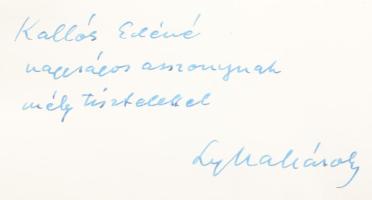 Kallós Edéné
nagyságos asszonynak
mély tisztelettel
Lyka Károly